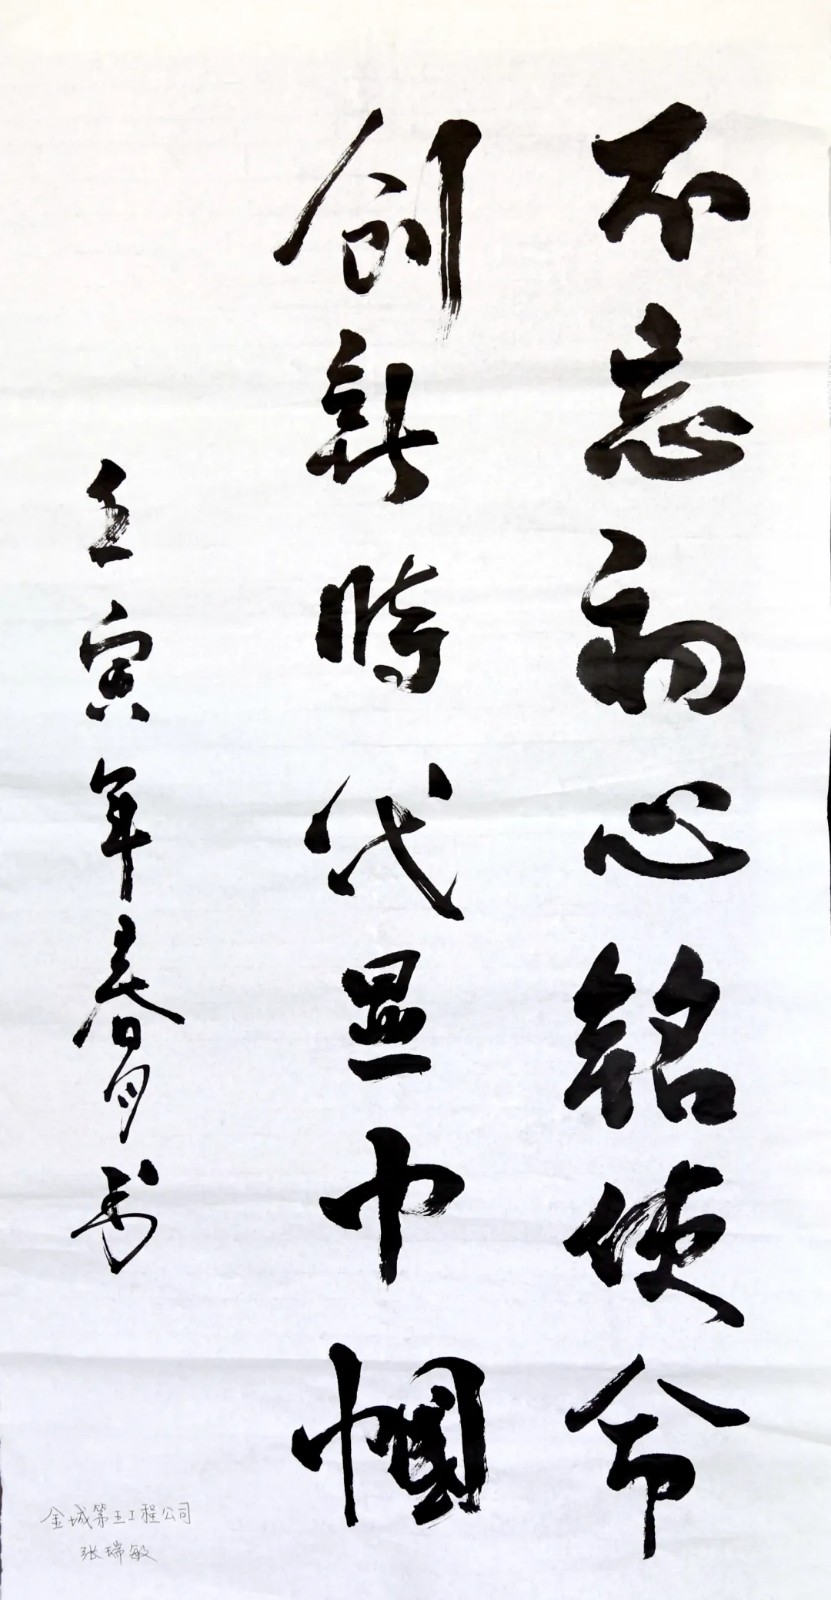 不忘初心铭使命
创新時代显巾帼
壬寅年春月书
金城第五工程公司
张瑞敏